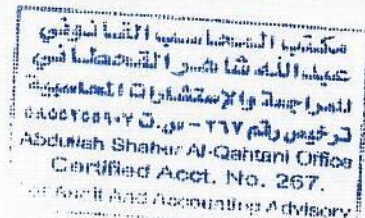 مكتب المحاسب القانوني
عبدالله شاهر القحطاني
للمراجعة والإستشارات المحاسبية
ترخيص رقم ٢٦٧ - س.ت
Abdullah Shaher Al-Qahtani Office
Certified Acct. No. 267.
For Audit And Accounting Advisory